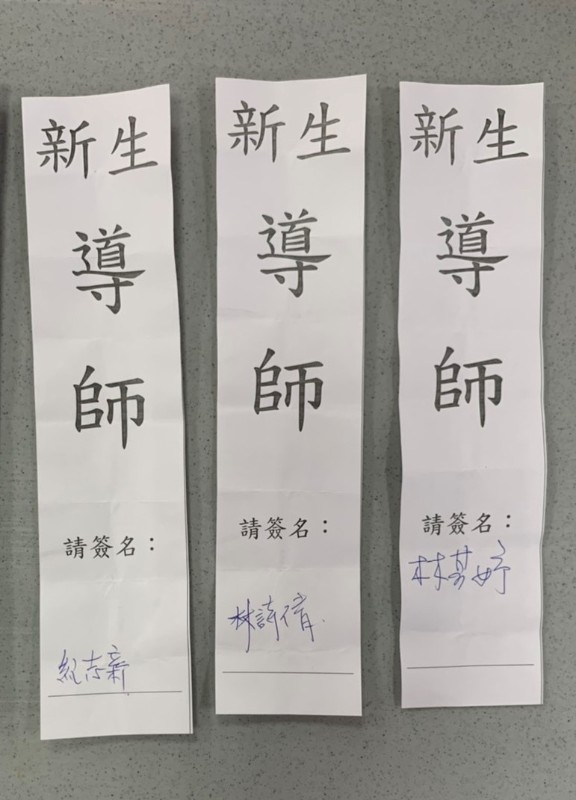 新生
導
師
請簽名：
紀志新
新生
導
師
請簽名：
林詩倩
新生
導
師
請簽名：